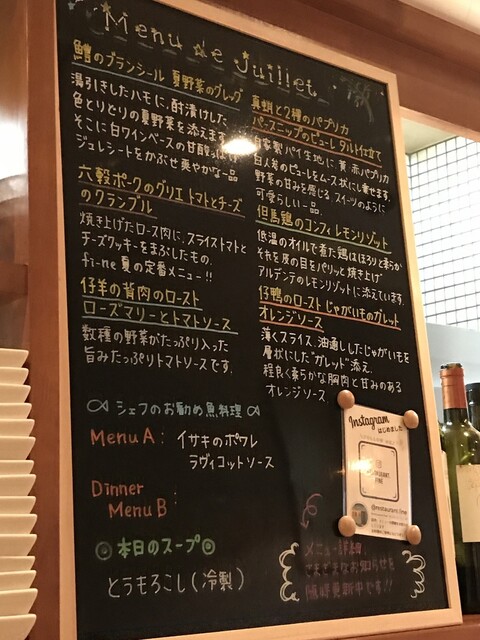 Menu de Juillet
鱧のブランシール 夏野菜のグレッグ
湯引きしたハモに、酢漬けした
色とりどりの夏野菜を添えます。
そこに白ワインベースの甘酸っぱい
ジュレシートをかぶせ爽やかな一品
六穀ポークのグリエ トマトとチーズ
のクランブル
焼き上げたロース肉に、スライストマトと
チーズクッキーをまぶしたもの。
fi-ne 夏の定番メニュー!!
仔羊の背肉のロースト
ローズマリーとトマトソース
数種の野菜がたっぷり入った
旨みたっぷりトマトソースです。
真蛸と2種のパプリカ
パースニップのピューレ タルト仕立て
自家製パイ生地に黄・赤パプリカ
白人参のピューレをムース状にし乗せます。
野菜の甘みを感じる、スイーツのように
可愛らしい一品。
但馬鶏のコンフィ レモンリゾット
低温のオイルで煮た鶏はほろりと柔らか
それを皮の目をパリッと焼き上げ
アルデンテのレモンリゾットに添えています。
仔鴨のロースト じゃがいものガレット
オレンジソース
薄くスライス、油通ししたじゃがいもを
層状にした"ガレット"添え
程良く柔らかな胸肉と甘みのある
オレンジソース
シェフのお勧め魚料理
Menu A: イサキのポワレ
ラヴィゴットソース
Dinner
Menu B :
◎本日のスープ◎
とうもろこし(冷製)
Instagram
はじめました
RESTAURANT
FINE
@restaurant.fine
メニュー以外の
さまざまなお知らせを
随時更新中です!!